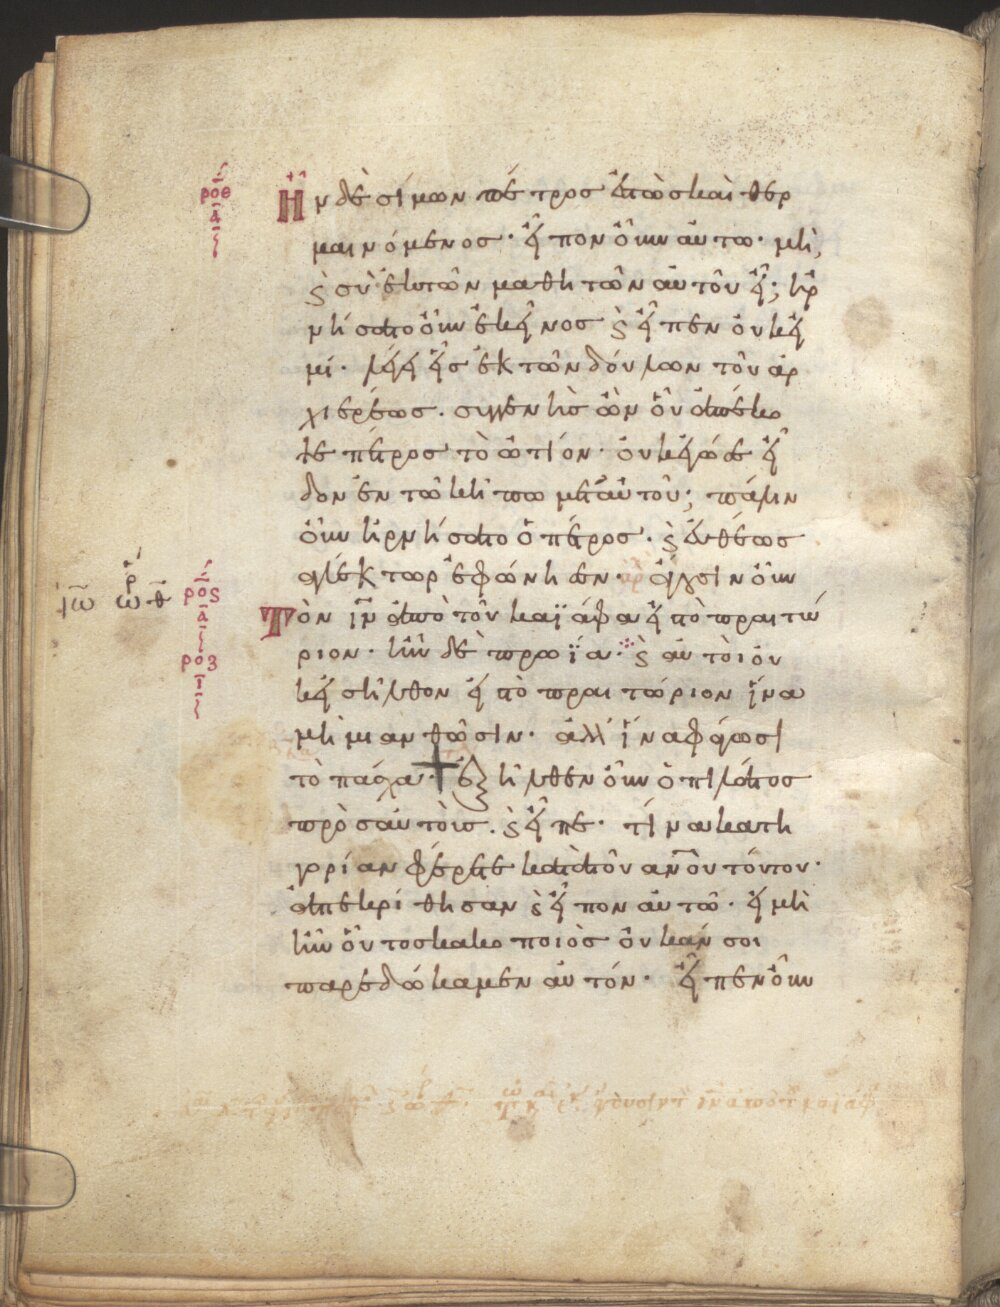 ροε
δ
Ἦν δὲ σίμων πέτρος ἑστὼς καὶ θερ
μαινόμενος· εἶπον οὖν αὐτῶ· μὴ
ϗ σὺ ἐκ τῶν μαθητῶν αὐτοῦ εἶ; ἠρ
νήσατο οὖν ἐκεῖνος ϗ εἶπεν οὐκ εἰ
μί· λέγει εἷς ἐκ τῶν δούλων τοῦ ἀρ
χιερέως· συγγενὴς ὢν οὗ ἀπέκο
ψε πέτρος τὸ ὠτίον· οὐκ ἐγώ σε εἶ
δον ἐν τῶ κήπω μετ αὐτοῦ; πάλιν
οὖν ἠρνήσατο ὁ πέτρος· ϗ εὐθέως
ἀλέκτωρ ἐφώνησεν· ἄγουσιν οὖν
ρος
α
Τὸν ιν ἀπὸ τοῦ καϊάφα εἰς τὸ πραιτώ
ριον· ἦν δὲ πρωΐα· ϗ αὐτοὶ οὐ
ροζ
ι
κ εἰσῆλθον εἰς τὸ πραιτώριον ἵνα
μὴ μιανθῶσιν· ἀλλ' ἵνα φάγωσι
τὸ πάσχα· ἐξῆλθεν οὖν ὁ πιλάτος
πρὸς αὐτοὺς· ϗ εἶπε· τίνα κατη
γορίαν φέρετε κατὰ τοῦ ανου τούτου·
ἀπεκρίθησαν ϗ εἶπον αὐτῶ· εἰ μὴ
ἦν οὗτος κακοποιὸς οὐκ ἄν σοι
παρεδώκαμεν αὐτόν· εἶπεν οὖν